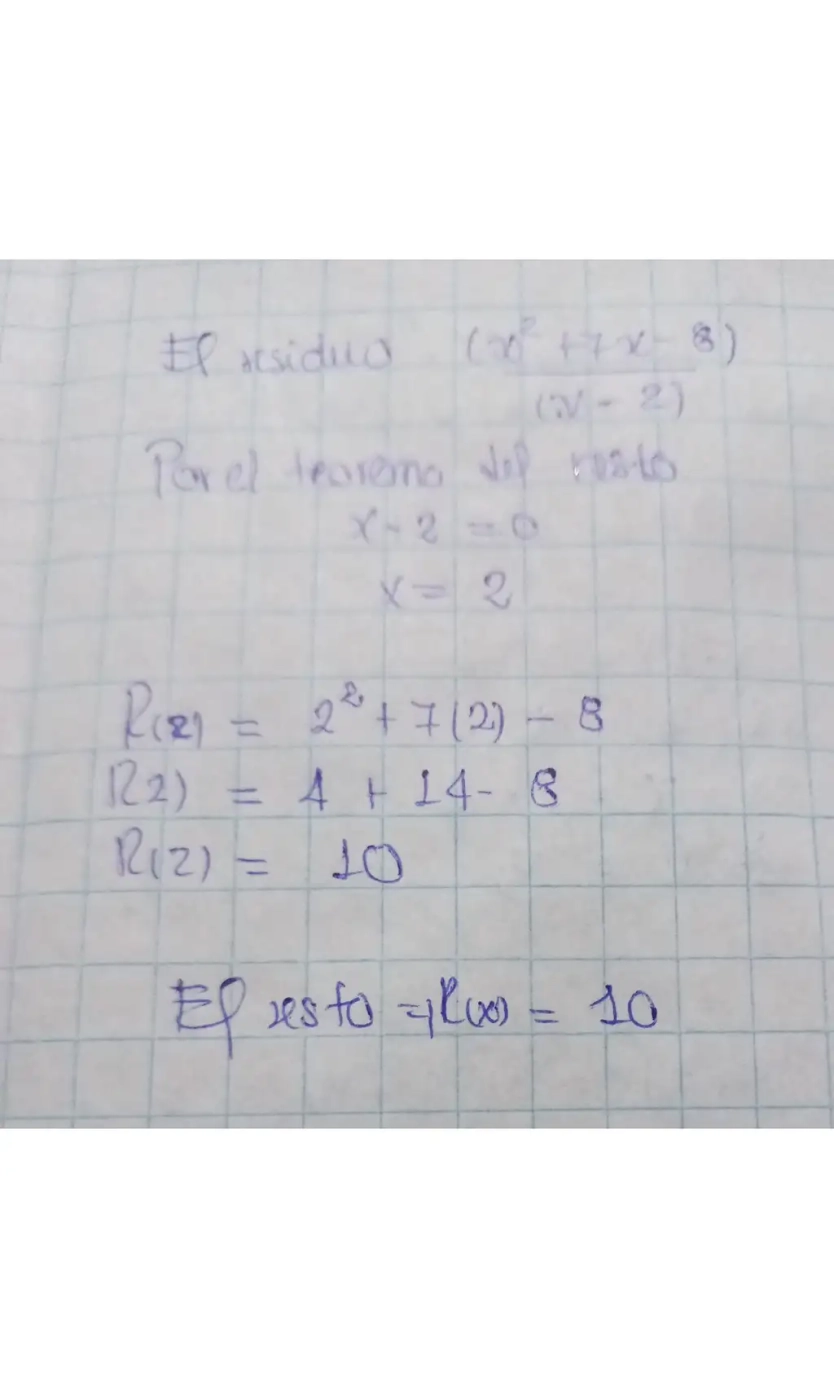 El residuo (x² + 7x - 8)
(x - 2)
Por el teorema del resto
x - 2 = 0
x = 2
R(2) = 2² + 7(2) - 8
R2) = 4 + 14 - 8
R(2) = 10
El resto ⇒ R(x) = 10